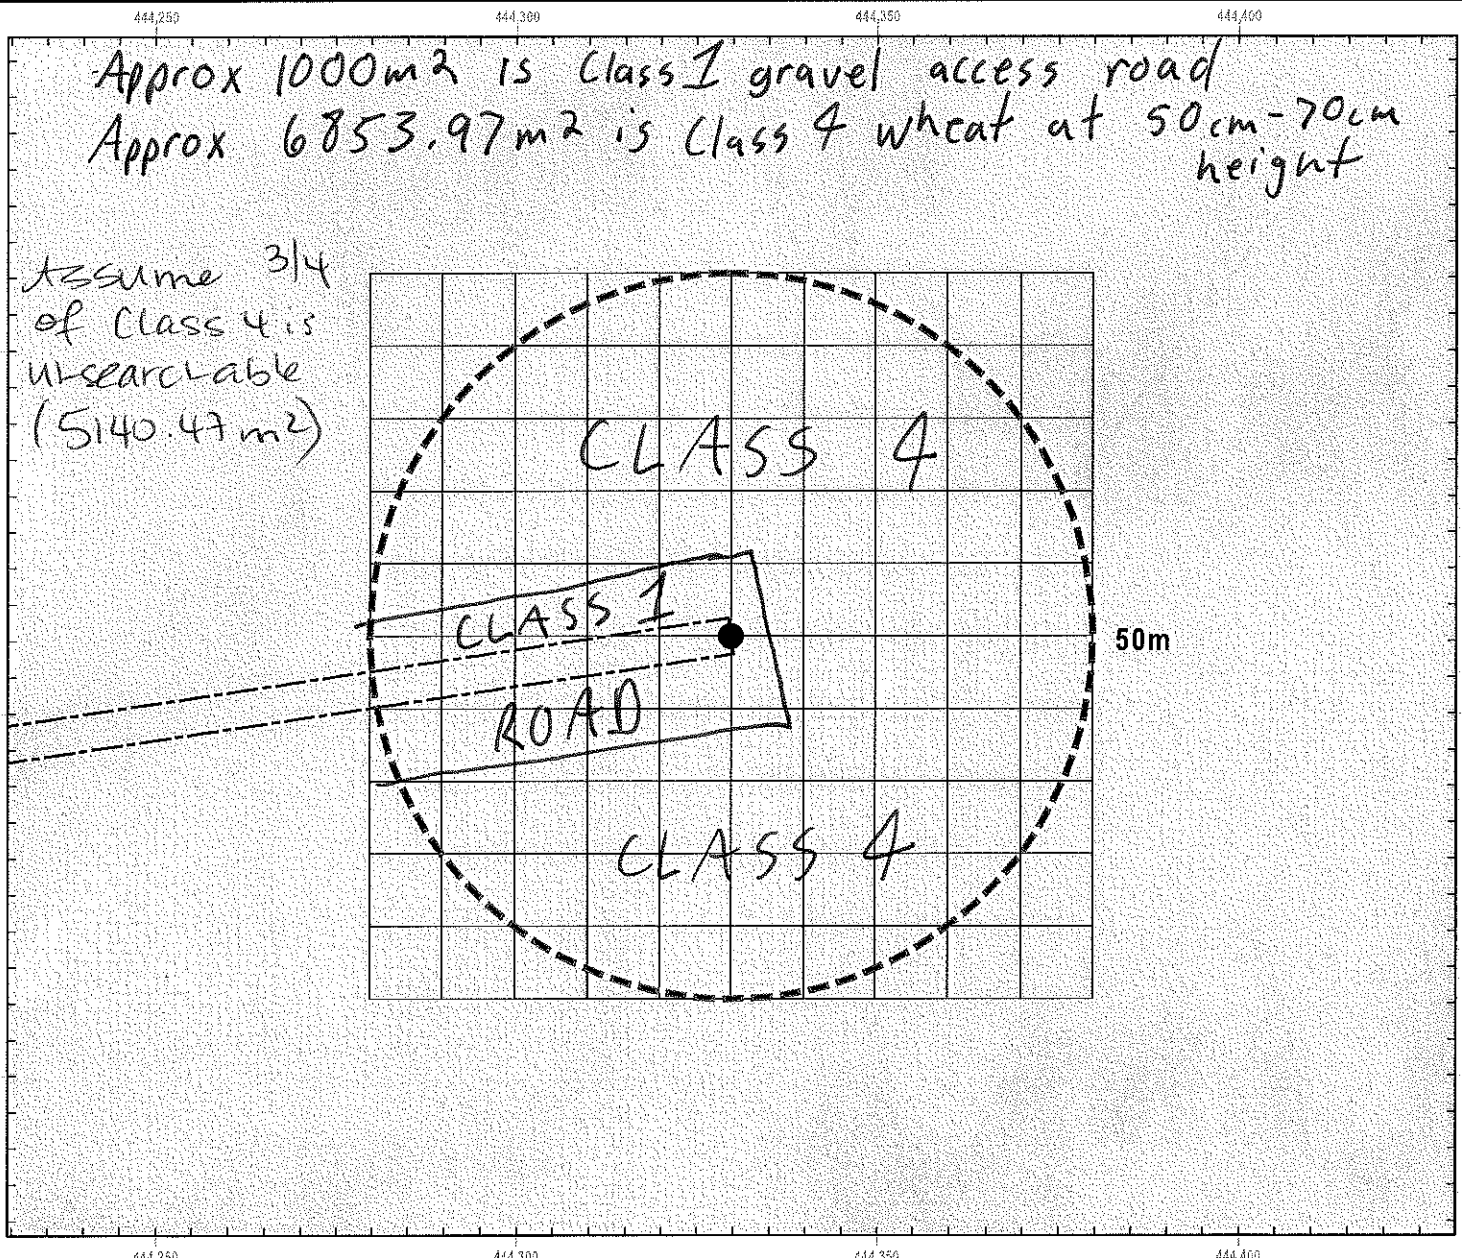 444,250 444,300 444,350 444,400
Approx 1000m2 is Class 1 gravel access road
Approx 6853.97m2 is Class 4 wheat at 50cm-70cm
height
Assume 3/4
of Class 4 is
unsearchable
(5140.47 m2)
CLASS 4
CLASS 1
50m
ROAD
CLASS 4
444,250 444,300 444,350 444,400